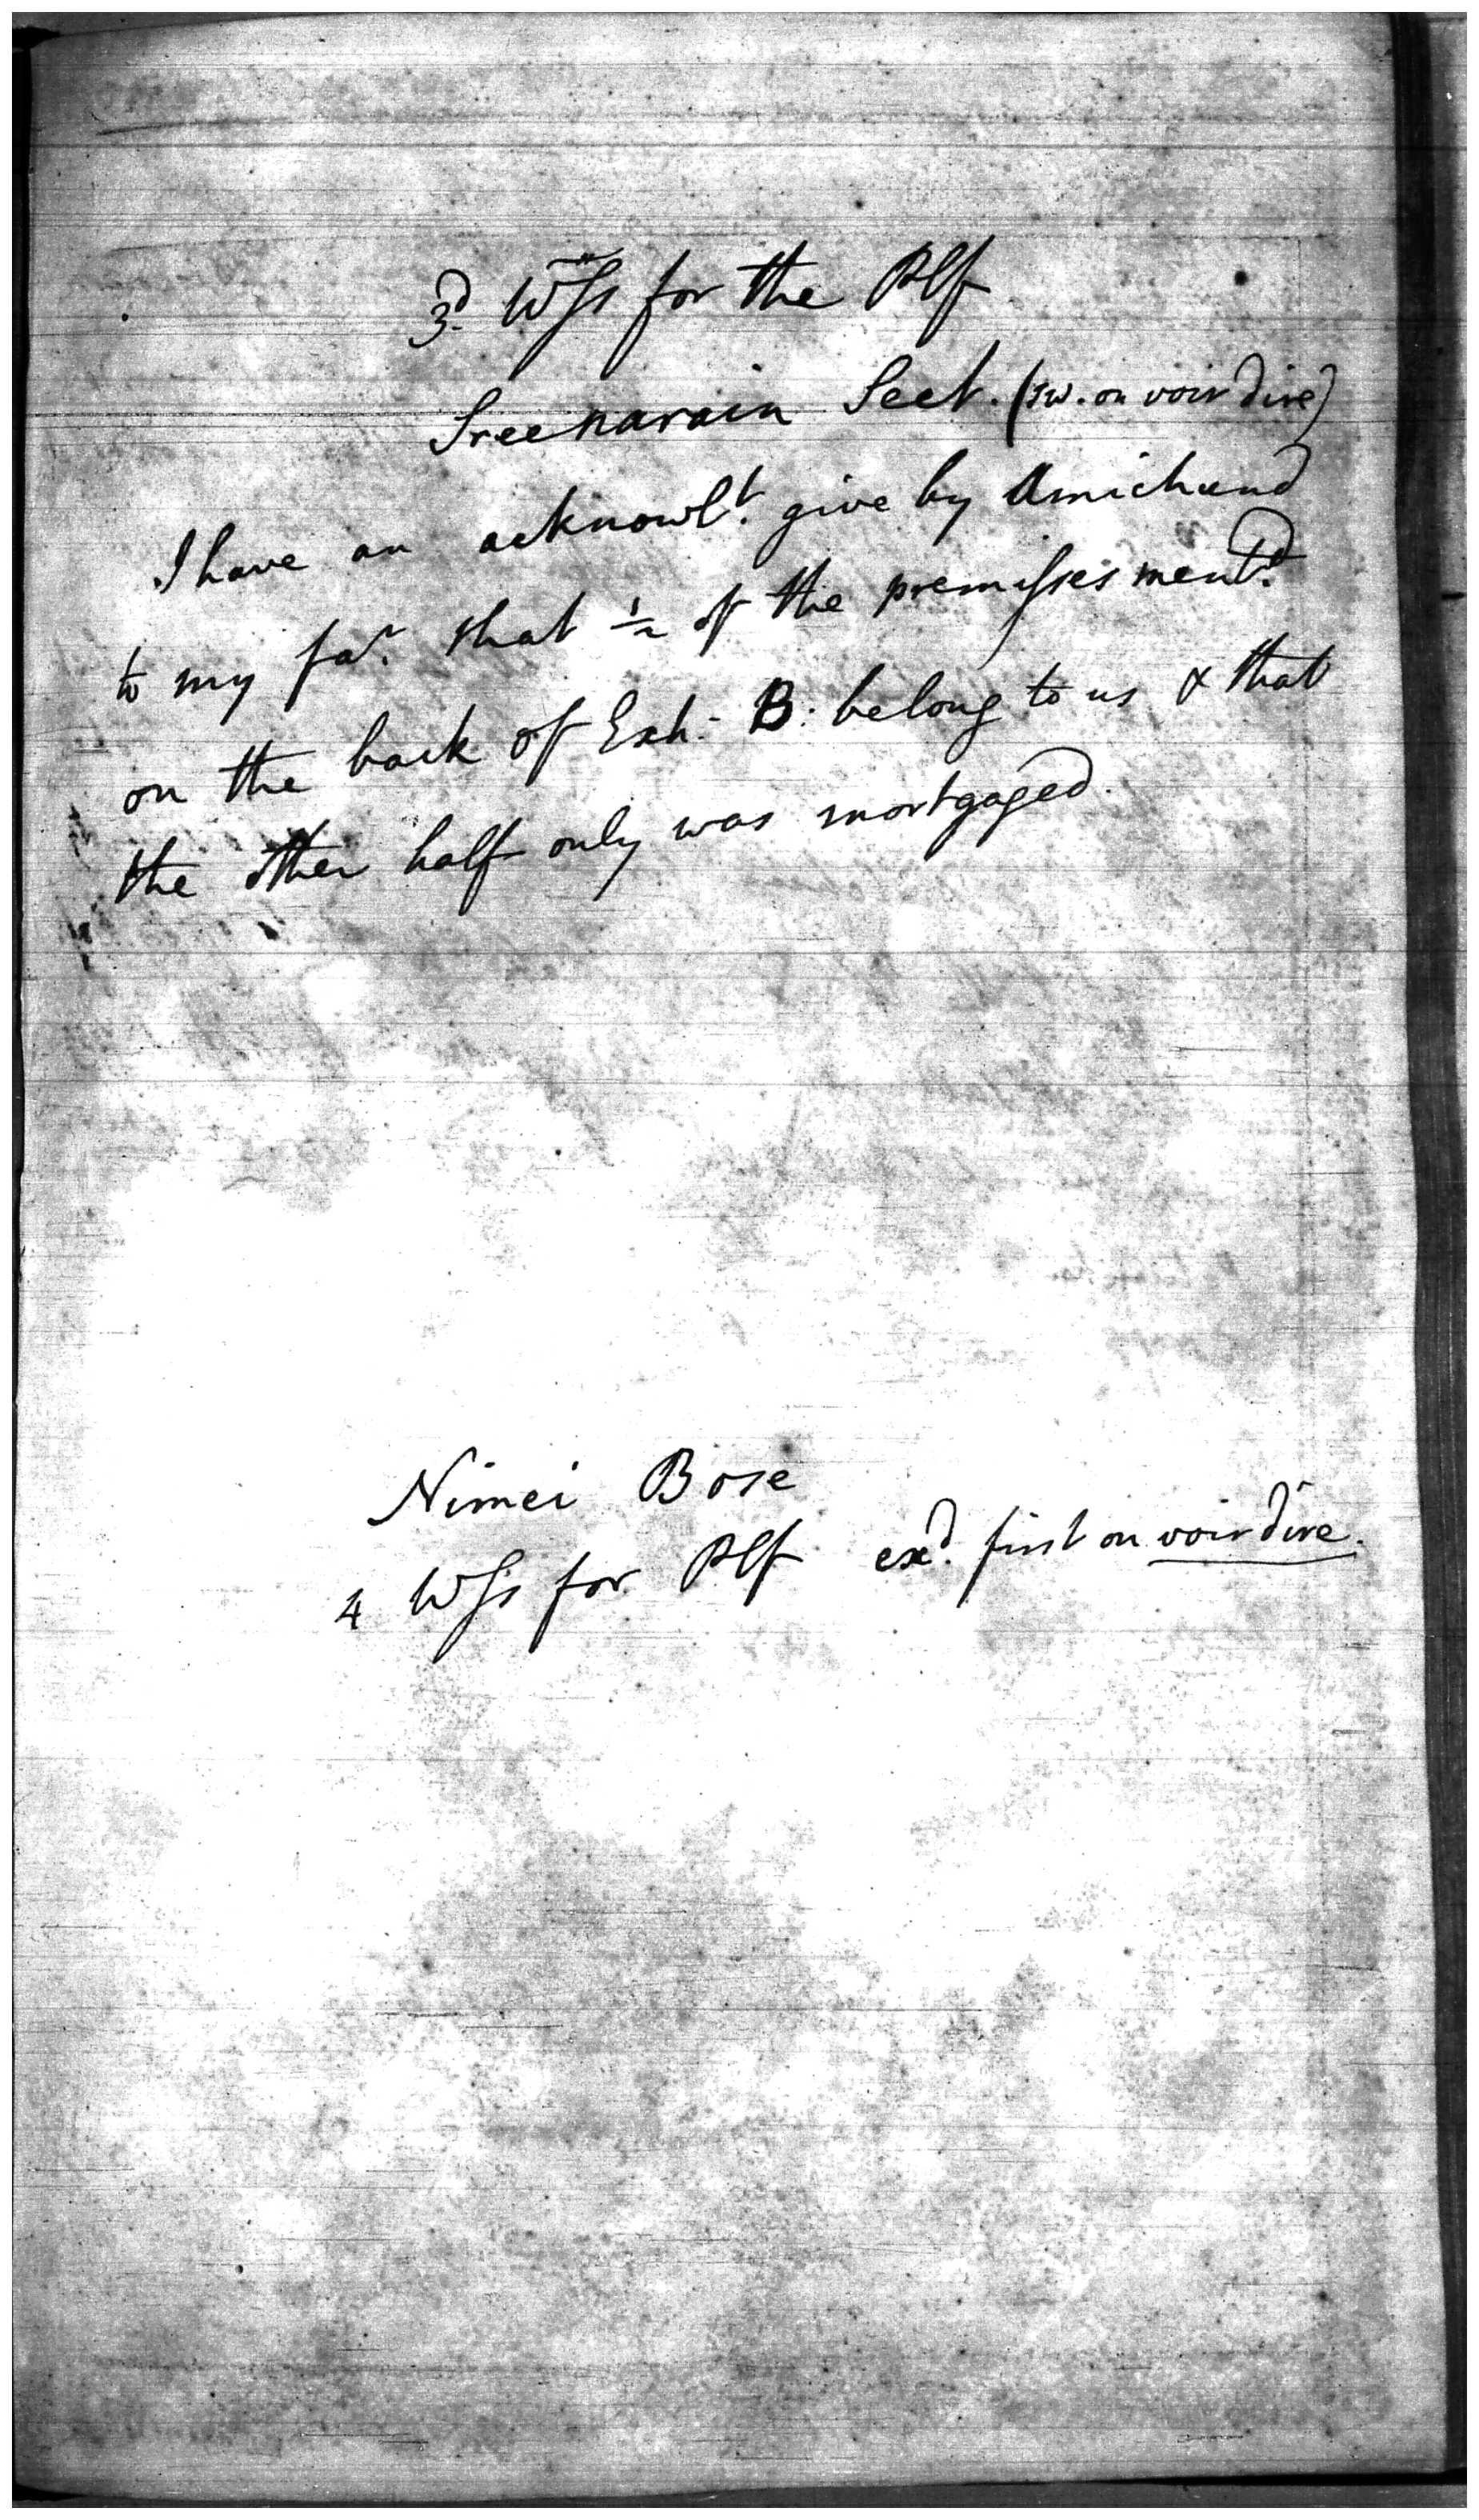 3.d Wss for the Plf
Sreenarain Seet. (sw. on voir dire)
I have an acknowlt. give by Amichund
to my far. that ½ of the premisses mentd.
on the back of Exh. B. belong to us & that
the other half only was mortgaged.
Nimei Bose
4 Wss for Plf exd. first on voir dire.